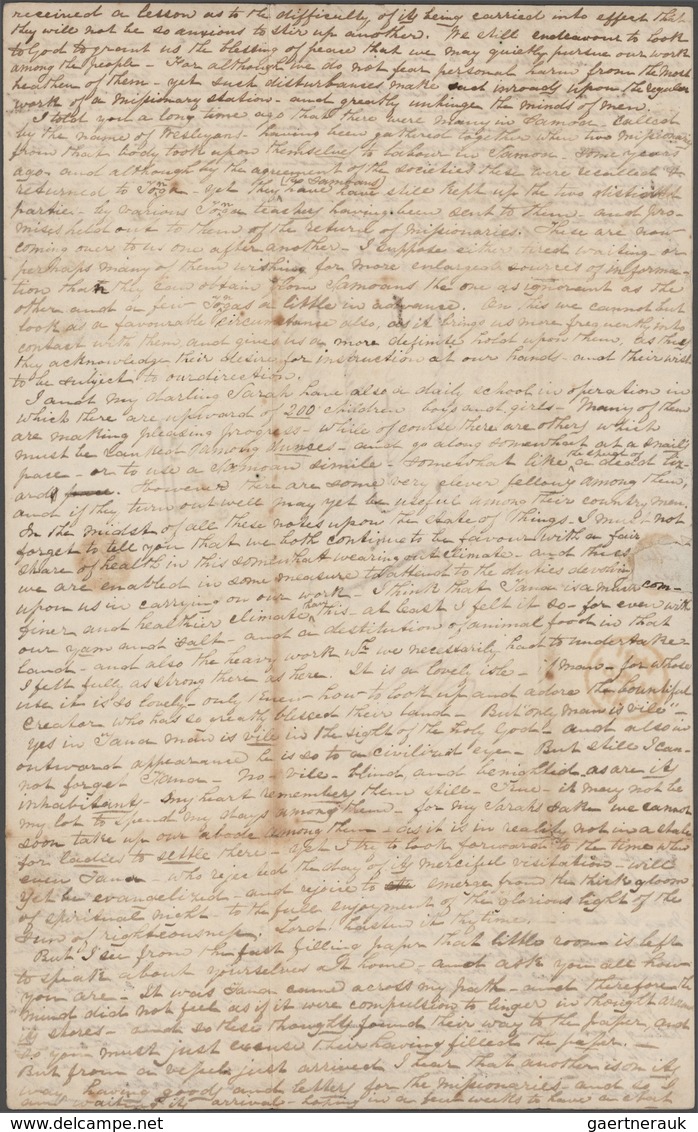 received a lesson as to the difficulty of its being carried into effect that
they will not be so anxious to stir up another. We still endeavour to look
to God to grant us the blessing of peace that we may quietly pursue our work
among the people - For although we do not fear personal harm from the most
heathen of them - yet such disturbances make sad inroads upon the regular
work of a missionary station - and greatly unhinge the minds of men.
I told you a long time ago that there were many in Samoa - called
by the name of Wesleyans - having been gathered together when two missionaries
from that body took upon themselves to labour in Samoa - some years
ago - and although by the agreement of the societies these were recalled &
returned to - yet they (the Samoans) have still kept up the two distinct
parties - by various teachers having been sent to them - and pro-
mises held out to them of the return of missionaries. These are now
coming over to us one after another - I suppose either tired waiting or
perhaps many of them wishing for more enlarged sources of informa-
tion than they can obtain from Samoans the one as ignorant as the
other and a few a little in advance. On this we cannot but
look as a favourable circumstance also, as it brings us more frequently into
contact with them, and gives us a more definite hold upon them, as they
they acknowledge their desire for instruction at our hands - and their wish
to be subject to our direction.
I and my darling Sarah have also a daily school in operation in
which there are upward of 200 children boys and girls - Many of them
are making pleasing progress - while of course there are others which
must be ranked among dunces - and go along somewhat at a snail
pace - or to use a Samoan simile - somewhat like the speed of a dead liz-
ard. However there are some very clever fellows among them,
and if they turn out well may yet be useful among their country men.
In the midst of all these notes upon the state of things - I must not
forget to tell you that we both continue to be favour with a fair
share of health in this somewhat wearing out climate - and thus
we are enabled in some measure to attend to the duties devolving
upon us in carrying on our work. I think that Tana is a much
finer and healthier climate than this - at least I felt it so - for even with
our yam and salt - and a destitution of animal food in that
land - and also the heavy work wh we necessarily had to undertake
I felt fully as strong there as here. It is a lovely isle - if man - for whose
use it is so lovely - only knew how to look up and adore the bountiful
Creator who has so greatly blessed their land - But "only man is vile"
Yes in Tana man is vile in the sight of the holy God - and also in
outward appearance he is so to a civilized eye - But still I can-
not forget Tana - no - vile - blind and benighted as are its
inhabitants - my heart remembers them still - True - it may not be
my lot to spend my days among them - for my Sarahs sake we cannot
soon take up our abode among them - as it is in reality not in a state
for ladies to settle there - yet I try to look forward to the time when
even Tana - who rejected the day of its merciful visitation - will
yet be evangelized - and rejoice to emerge from the thick gloom
of spiritual night - to the full enjoyment of the glorious light of the
Sun of righteousness. Lord hasten it thy time -
But I see from the fast filling paper that little room is left
to speak about yourselves at home - and ask you all how
you are - It was Tana came across my path - and therefore the
mind did not feel as if it were compulsion to linger in thought
its shores - and so these thoughts found their way to the paper, and
so you must just excuse their having filled the paper. -
But from a vessel just arrived I hear that another is on its
way having goods and letters for the missionaries - and so I
am waiting its arrival - hoping in a few weeks to have a chat
gaertnerauk